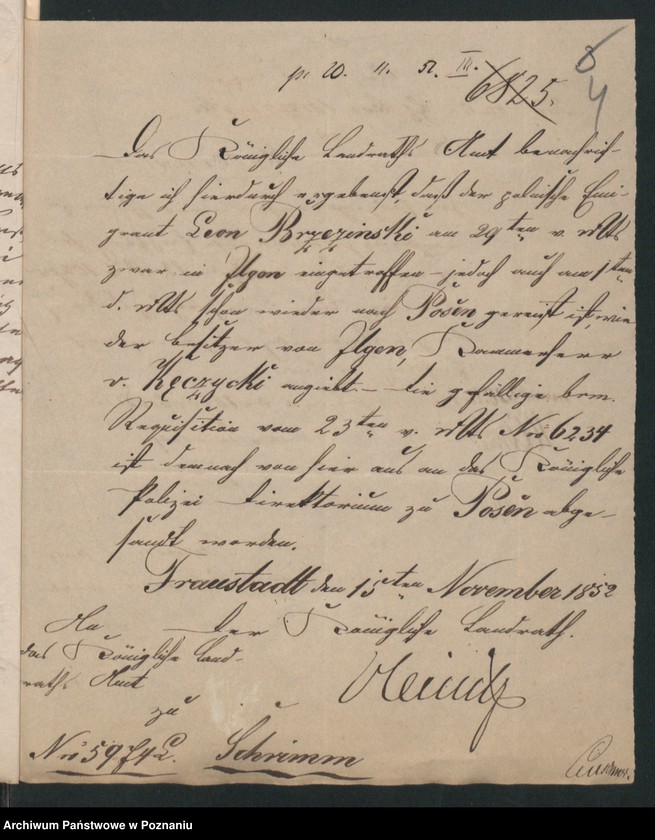 pr. 20. 11. 52. III.
6825.
4
Das Königliche Landraths Amt benachrich-
tige ich hierdurch ergebenst, daß der polnische Emi-
grant Leon Brzezinski am 29ten v. Mts
zwar in Ilgen eingetroffen – jedoch auch am 1ten
d. Mts schon wieder nach Posen gereist ist wie
der Besitzer von Ilgen, Kammerherr
v. Kęczycki angiebt. – Die gefällige
Requisition vom 23ten v. Mts No 6234
ist demnach von hier aus an das Königliche
Polizei Direktorium zu Posen abge-
sandt worden.
Fraustadt den 15ten November 1852
Der Königliche Landrath.
An
das Königliche Land-
raths Amt
zu
Schrimm
Archiwum Państwowe w Poznaniu